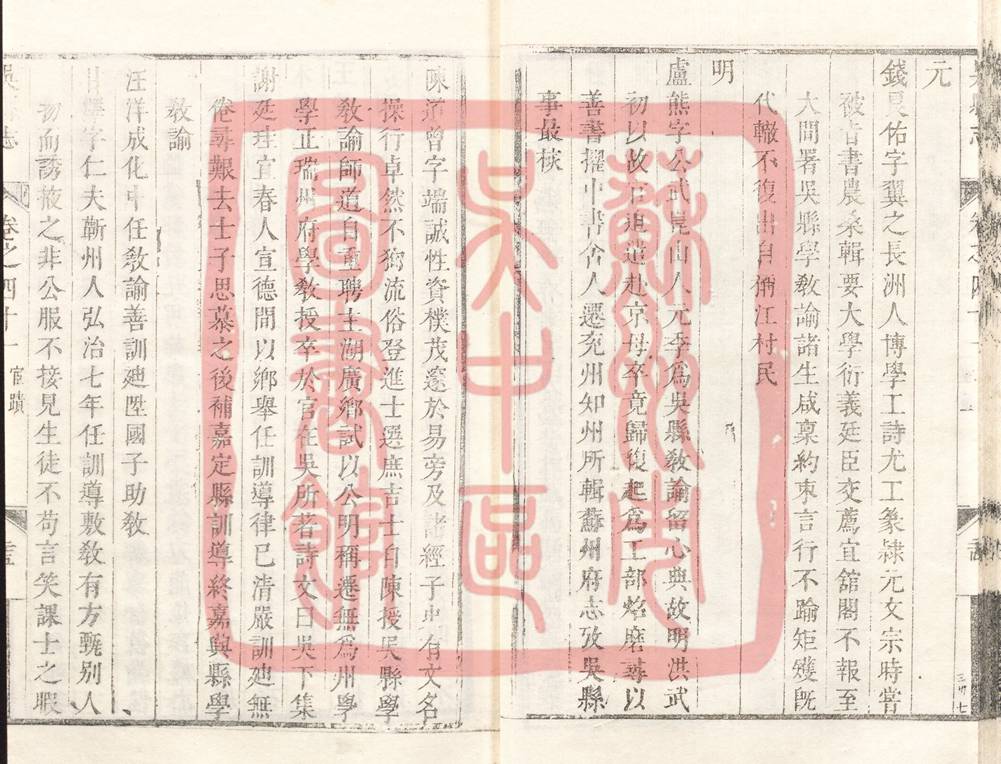 元
錢良佑字翼之長洲人博學工詩尤工篆隸元文宗時嘗
被旨書農桑輯要大學衍義廷臣交薦宜舘閣不報至
大間署吳縣學敎諭諸生咸稟約束言行不踰矩矱旣
代轍不復出自稱江村民
明
盧熊字公武崑山人元季爲吳縣敎諭留心典故明洪武
初以故官迫遣赴京母卒竟歸復起爲工部炤磨尋以
善書擢中書舍人遷兖州知州所輯蘇州府志攷吳縣
事最核
陳道曾字端誠性資樸茂邃於易旁及諸經子史有文名
操行卓然不狥流俗登進士選庶吉士自陳授吳縣學
敎諭師道自重聘主湖廣鄉試以公明稱遷無爲州學
學正瑞州府學敎授卒於官在吳所著詩文曰吳下集
謝廷珪宜春人宣德間以鄉舉任訓導律已清嚴訓廸無
倦尋艱去士子思慕之後補嘉定縣訓導終嘉興縣學
敎諭
汪洋成化中任敎諭善訓廸陞國子助敎
甘澤字仁夫蘄州人弘治七年任訓導敷敎有方甄别人
物而誘掖之非公服不接見生徒不苟言笑課士之暇
吳縣志
卷之四十一
宦蹟
蘇州市
吳中區
圖書館
三卅七